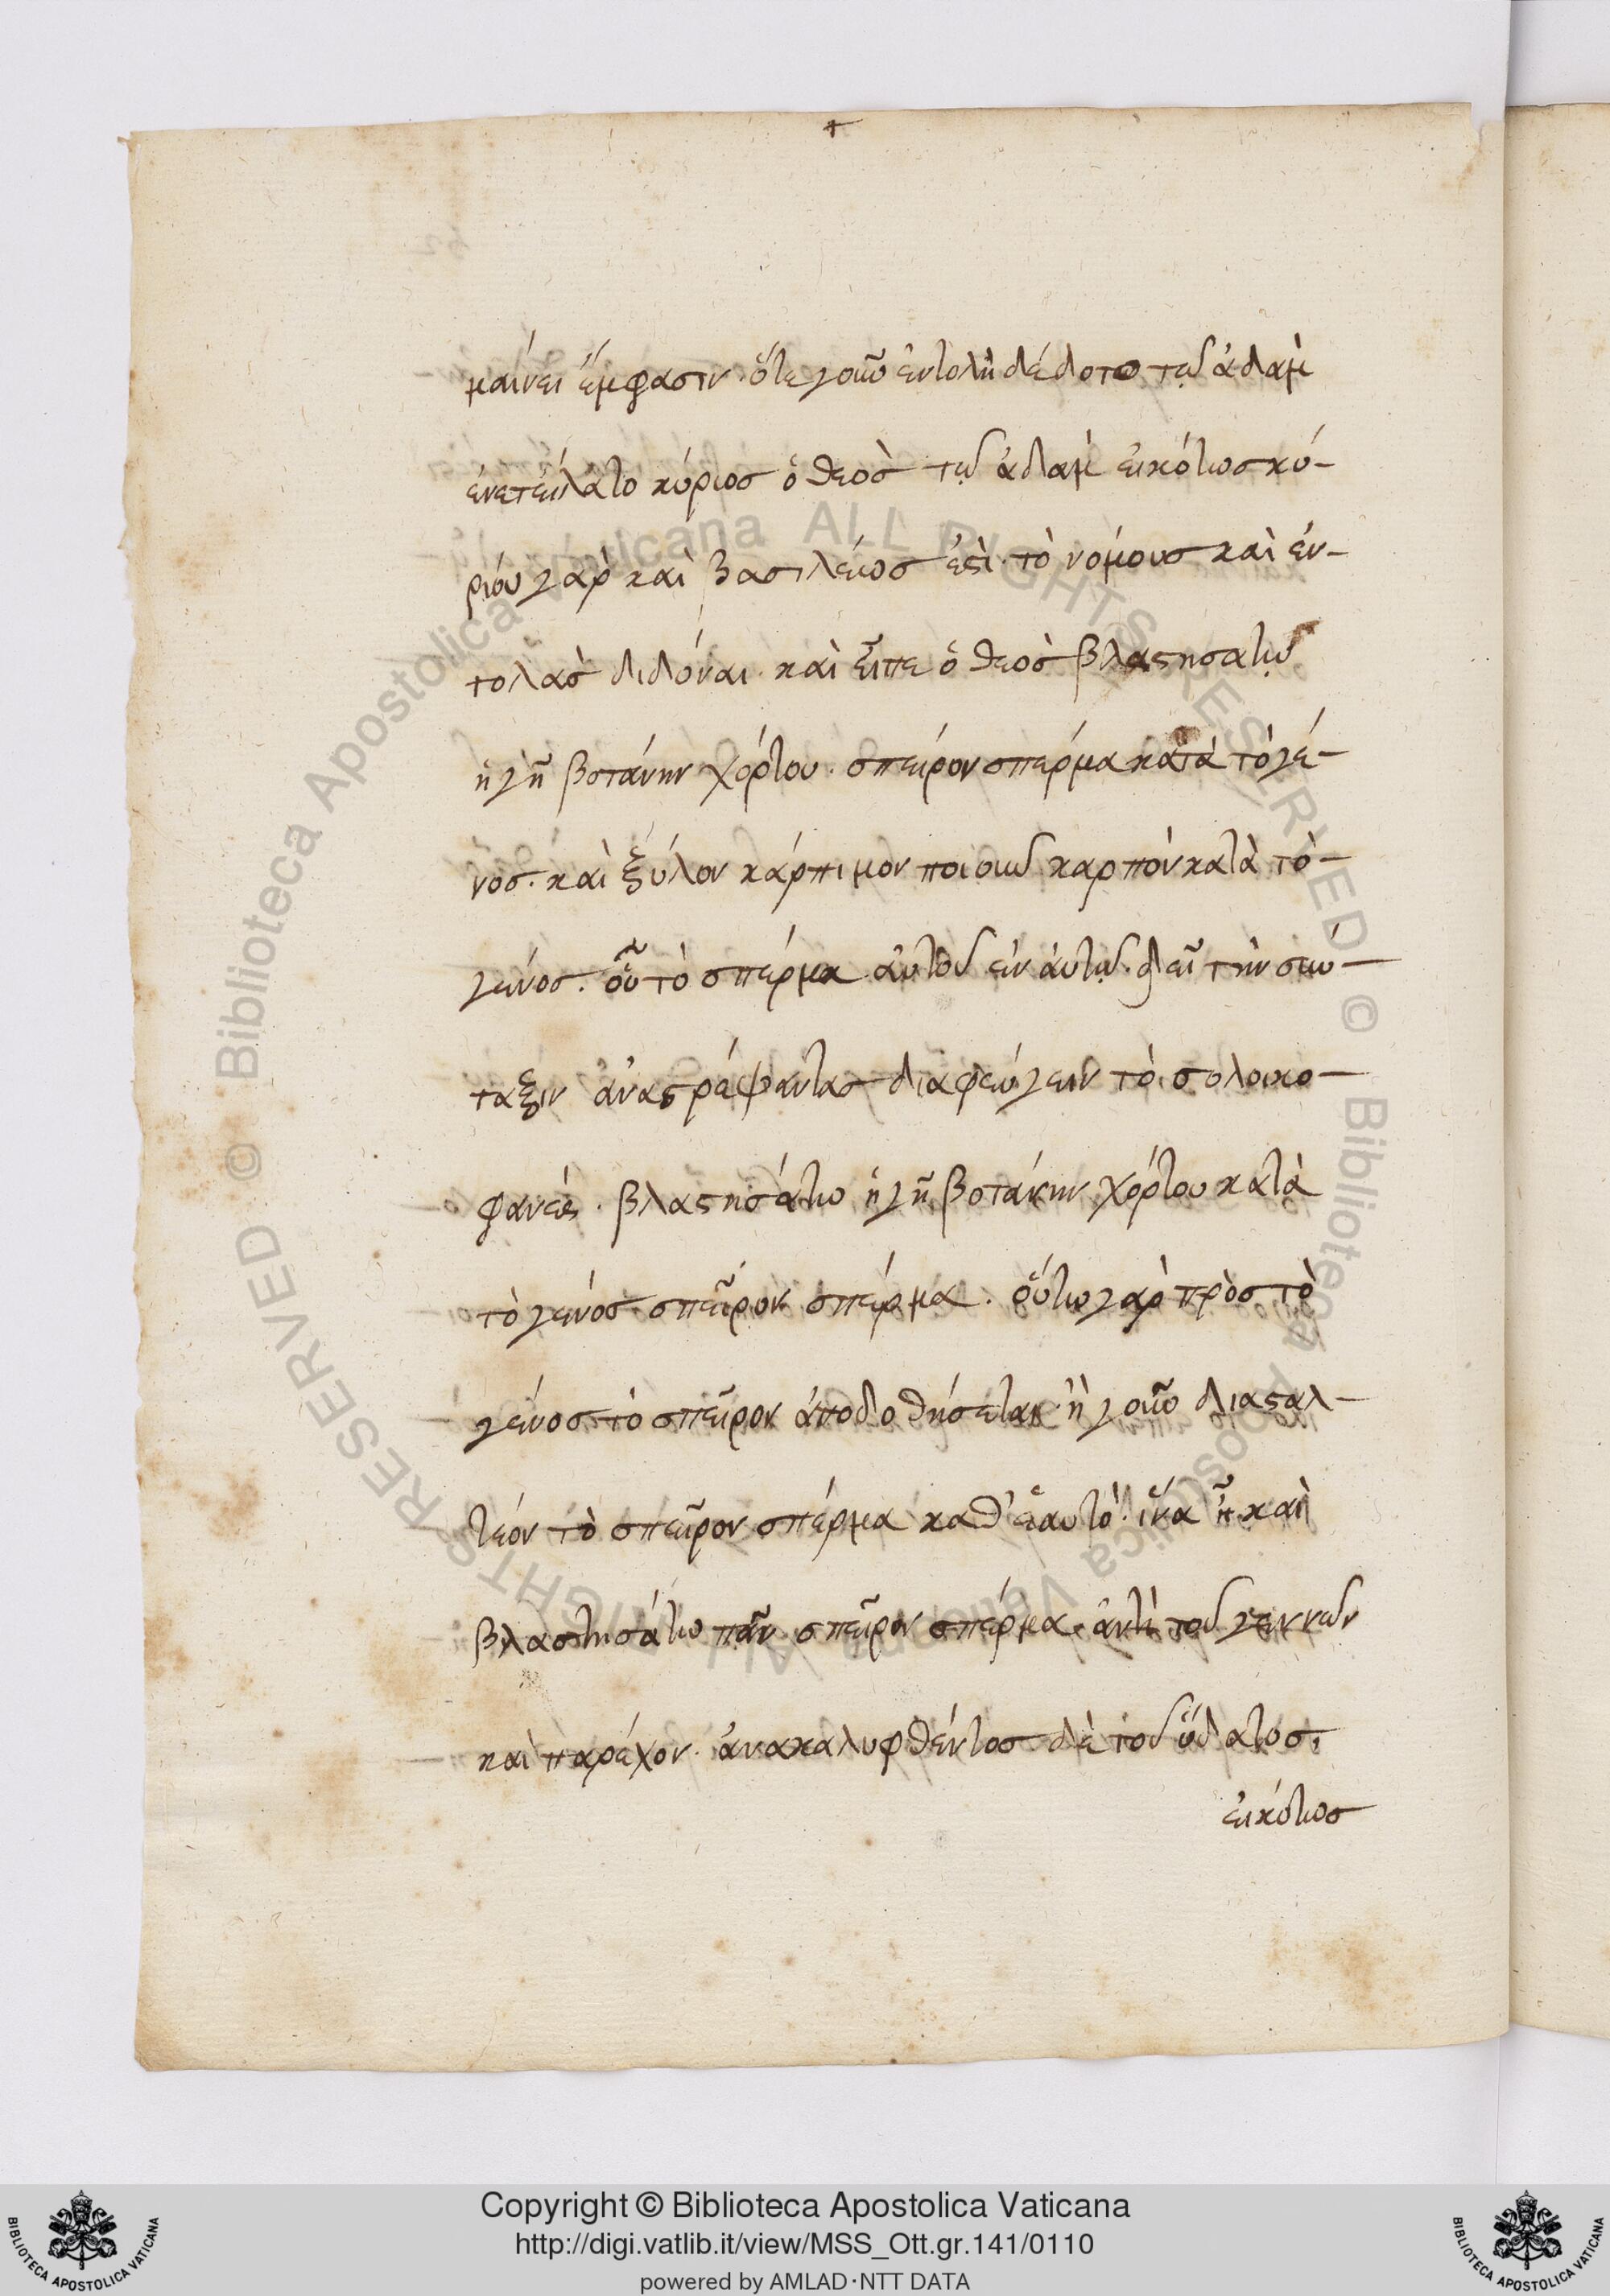 μαίνει ἔμφασιν· ὅτε γοῦν ἐντολὴ δέδοτο τῷ ἀδαμ
ἐνετείλατο κύριος ὁ θεὸς τῷ ἀδαμ εἰκότως κύ-
ρίου γὰρ καὶ βασιλέως ἐστὶ· τὸ νόμους καὶ ἐν-
τολὰς διδόναι· καὶ εἶπε ὁ θεὸς βλαστησατω
ἡ γῆ βοτάνην χόρτου· σπείρον σπέρμα κατὰ τὸ γέ-
νος· καὶ ξύλον κάρπιμον ποιοῦν καρπὸν κατὰ τὸ-
γένος· οὗ τὸ σπέρμα αὐτοῦ ἐν αὐτῷ· δεῖ τὴν σύν-
ταξιν ἀναστρέψαντας διαφεύγειν τὸ σολοικο-
φανές· βλαστησάτω ἡ γῆ βοτάνην χόρτου κατὰ
τὸ γένος σπεῖρον σπέρμα· οὕτω γὰρ πρὸς τὸ
γένος τὸ σπεῖρον ἀποδοθήσεται· ἢ γοῦν διασταλ-
τέον τὸ σπεῖρον σπέρμα καθ' ἑαυτό· ἵνα ᾖ καὶ
βλαστησάτω πᾶν σπεῖρον σπέρμα· ἀντὶ τοῦ γεννῶν
καὶ παρέχον· ἀνακαλυφθέντος δὲ τοῦ ὕδατος·
εἰκότως
Copyright © Biblioteca Apostolica Vaticana
http://digi.vatlib.it/view/MSS_Ott.gr.141/0110
powered by AMLAD·NTT DATA
BIBLIOTECA APOSTOLICA VATICANA
BIBLIOTECA APOSTOLICA VATICANA
© Biblioteca Apostolica Vaticana ALL RIGHTS RESERVED © Biblioteca Apostolica Vaticana ALL RIGHTS RESERVED